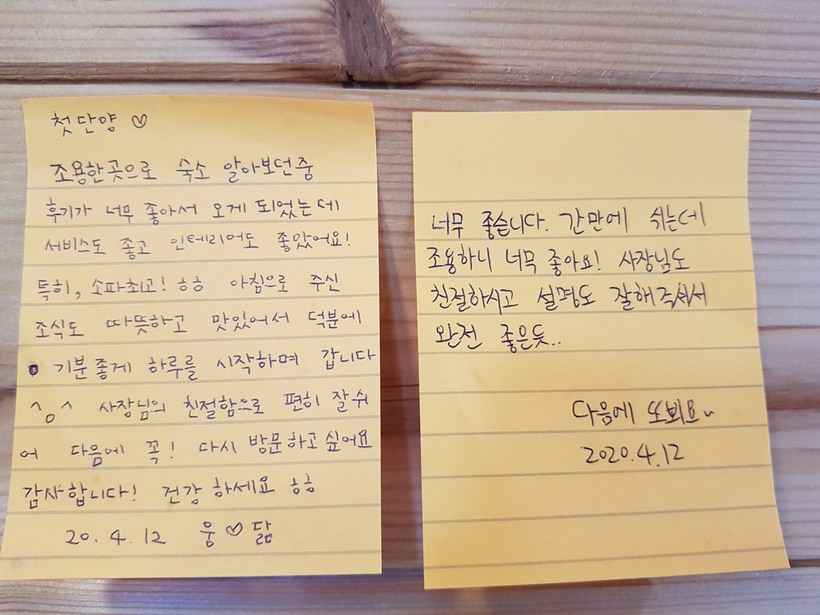 첫단양 ♡
조용한곳으로 숙소 알아보던중
후기가 너무 좋아서 오게 되었는데
서비스도 좋고 인테리어도 좋았어요!
특히, 소파최고! ㅎㅎ 아침으로 주신
조식도 따뜻하고 맛있어서 덕분에
기분좋게 하루를 시작하며 갑니다
^o^ 사장님의 친절함으로 편히 잘쉬
어 다음에 꼭! 다시 방문하고싶어요
감사합니다! 건강하세요 ㅎㅎ
20. 4. 12 웅♡닮
너무 좋습니다. 간만에 쉬는데
조용하니 너무 좋아요! 사장님도
친절하시고 설명도 잘해주셔서
완전 좋은듯..
다음에 또뵈요~
2020.4.12